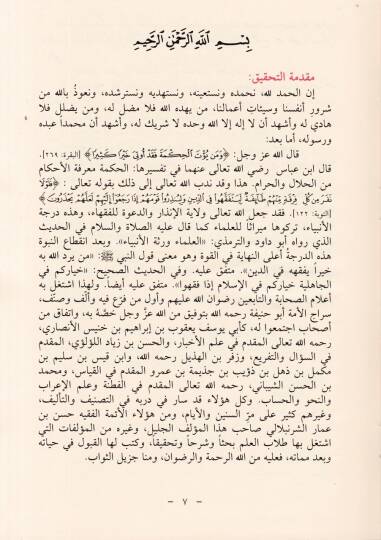 بِسْمِ اللَّهِ الرَّحْمَٰنِ الرَّحِيمِ
مقدمة التحقيق:
إن الحمد لله، نحمده ونستعينه، ونستهديه ونسترشده، ونعوذُ بالله من
شرور أنفسنا وسيئاتِ أعمالنا، من يهده الله فلا مضل له، ومن يضلل فلا
هادي له وأشهد أن لا إله إلا الله وحده لا شريك له، وأشهد أن محمدا عبده
ورسوله، أما بعد:
قال الله عز وجل: ﴿وَمَن يُؤْتَ الْحِكْمَةَ فَقَدْ أُوتِيَ خَيْرًا كَثِيرًا﴾ [البقرة: ٢٦٩].
قال ابن عباس رضي الله تعالى عنهما في تفسيرها: الحكمة معرفة الأحكام
من الحلال والحرام. هذا وقد ندب الله تعالى إلى ذلك بقوله تعالى : ﴿فَلَوْلَا
نَفَرَ مِن كُلِّ فِرْقَةٍ مِّنْهُمْ طَائِفَةٌ لِّيَتَفَقَّهُوا فِي الدِّينِ وَلِيُنذِرُوا قَوْمَهُمْ إِذَا رَجَعُوا إِلَيْهِمْ لَعَلَّهُمْ يَحْذَرُونَ﴾
[التوبة: ١٢٢]. فقد جعل الله تعالى ولاية الإنذار والدعوة للفقهاء، وهذه درجة
الأنبياء، تركوها ميراثًا للعلماء كما قال عليه الصلاة والسلام في الحديث
الذي رواه أبو داود والترمذي: «العلماء ورثة الأنبياء». وبعد انقطاع النبوة
هذه الدرجةُ أعلى النهاية في القوة وهو معنى قول النبي ﷺ: «من يرد الله به
خيراً يفقهه في الدين». متفق عليه. وفي الحديث الصحيح: «خياركم في
الجاهلية خياركم في الإسلام إذا فقهوا». متفق عليه أيضاً. ولهذا اشتغل به
أعلام الصحابة والتابعين رضوان الله عليهم وأول من فرّع فيه وألّف وصنّف،
سراج الأمة أبو حنيفة رحمه الله بتوفيق من الله عزّ وجل خصّهُ به، واتفاق من
أصحاب اجتمعوا له، كأبي يوسف يعقوب بن إبراهيم بن خنيس الأنصاري،
رحمه الله تعالى المقدم في علم الأخبار، والحسن بن زياد اللؤلؤي، المقدم
في السؤال والتفريع، وزفر بن الهذيل رحمه الله، وابن قيس بن سليم بن
مكمل بن ذهل بن ذؤيب بن جذيمة بن عمرو المقدم في القياس، ومحمد
بن الحسن الشيباني، رحمه الله تعالى المقدم في الفطنة وعلم الإعراب
والنحو والحساب. وكل هؤلاء قد سار في دربه في التصنيف والتأليف،
وغيرهم كثير على مرّ السنين والأيام، ومن هؤلاء الأئمة الفقيه حسن بن
عمار الشرنبلالي صاحب هذا المؤلف الجليل، وغيره من المؤلفات التي
اشتغل بها طلاب العلم بحثاً وشرحاً وتحقيقاً، وكتب لها القبول في حياته
وبعد مماته، فعليه من الله الرحمة والرضوان، ومنا جزيل الثواب.
- ٧ -